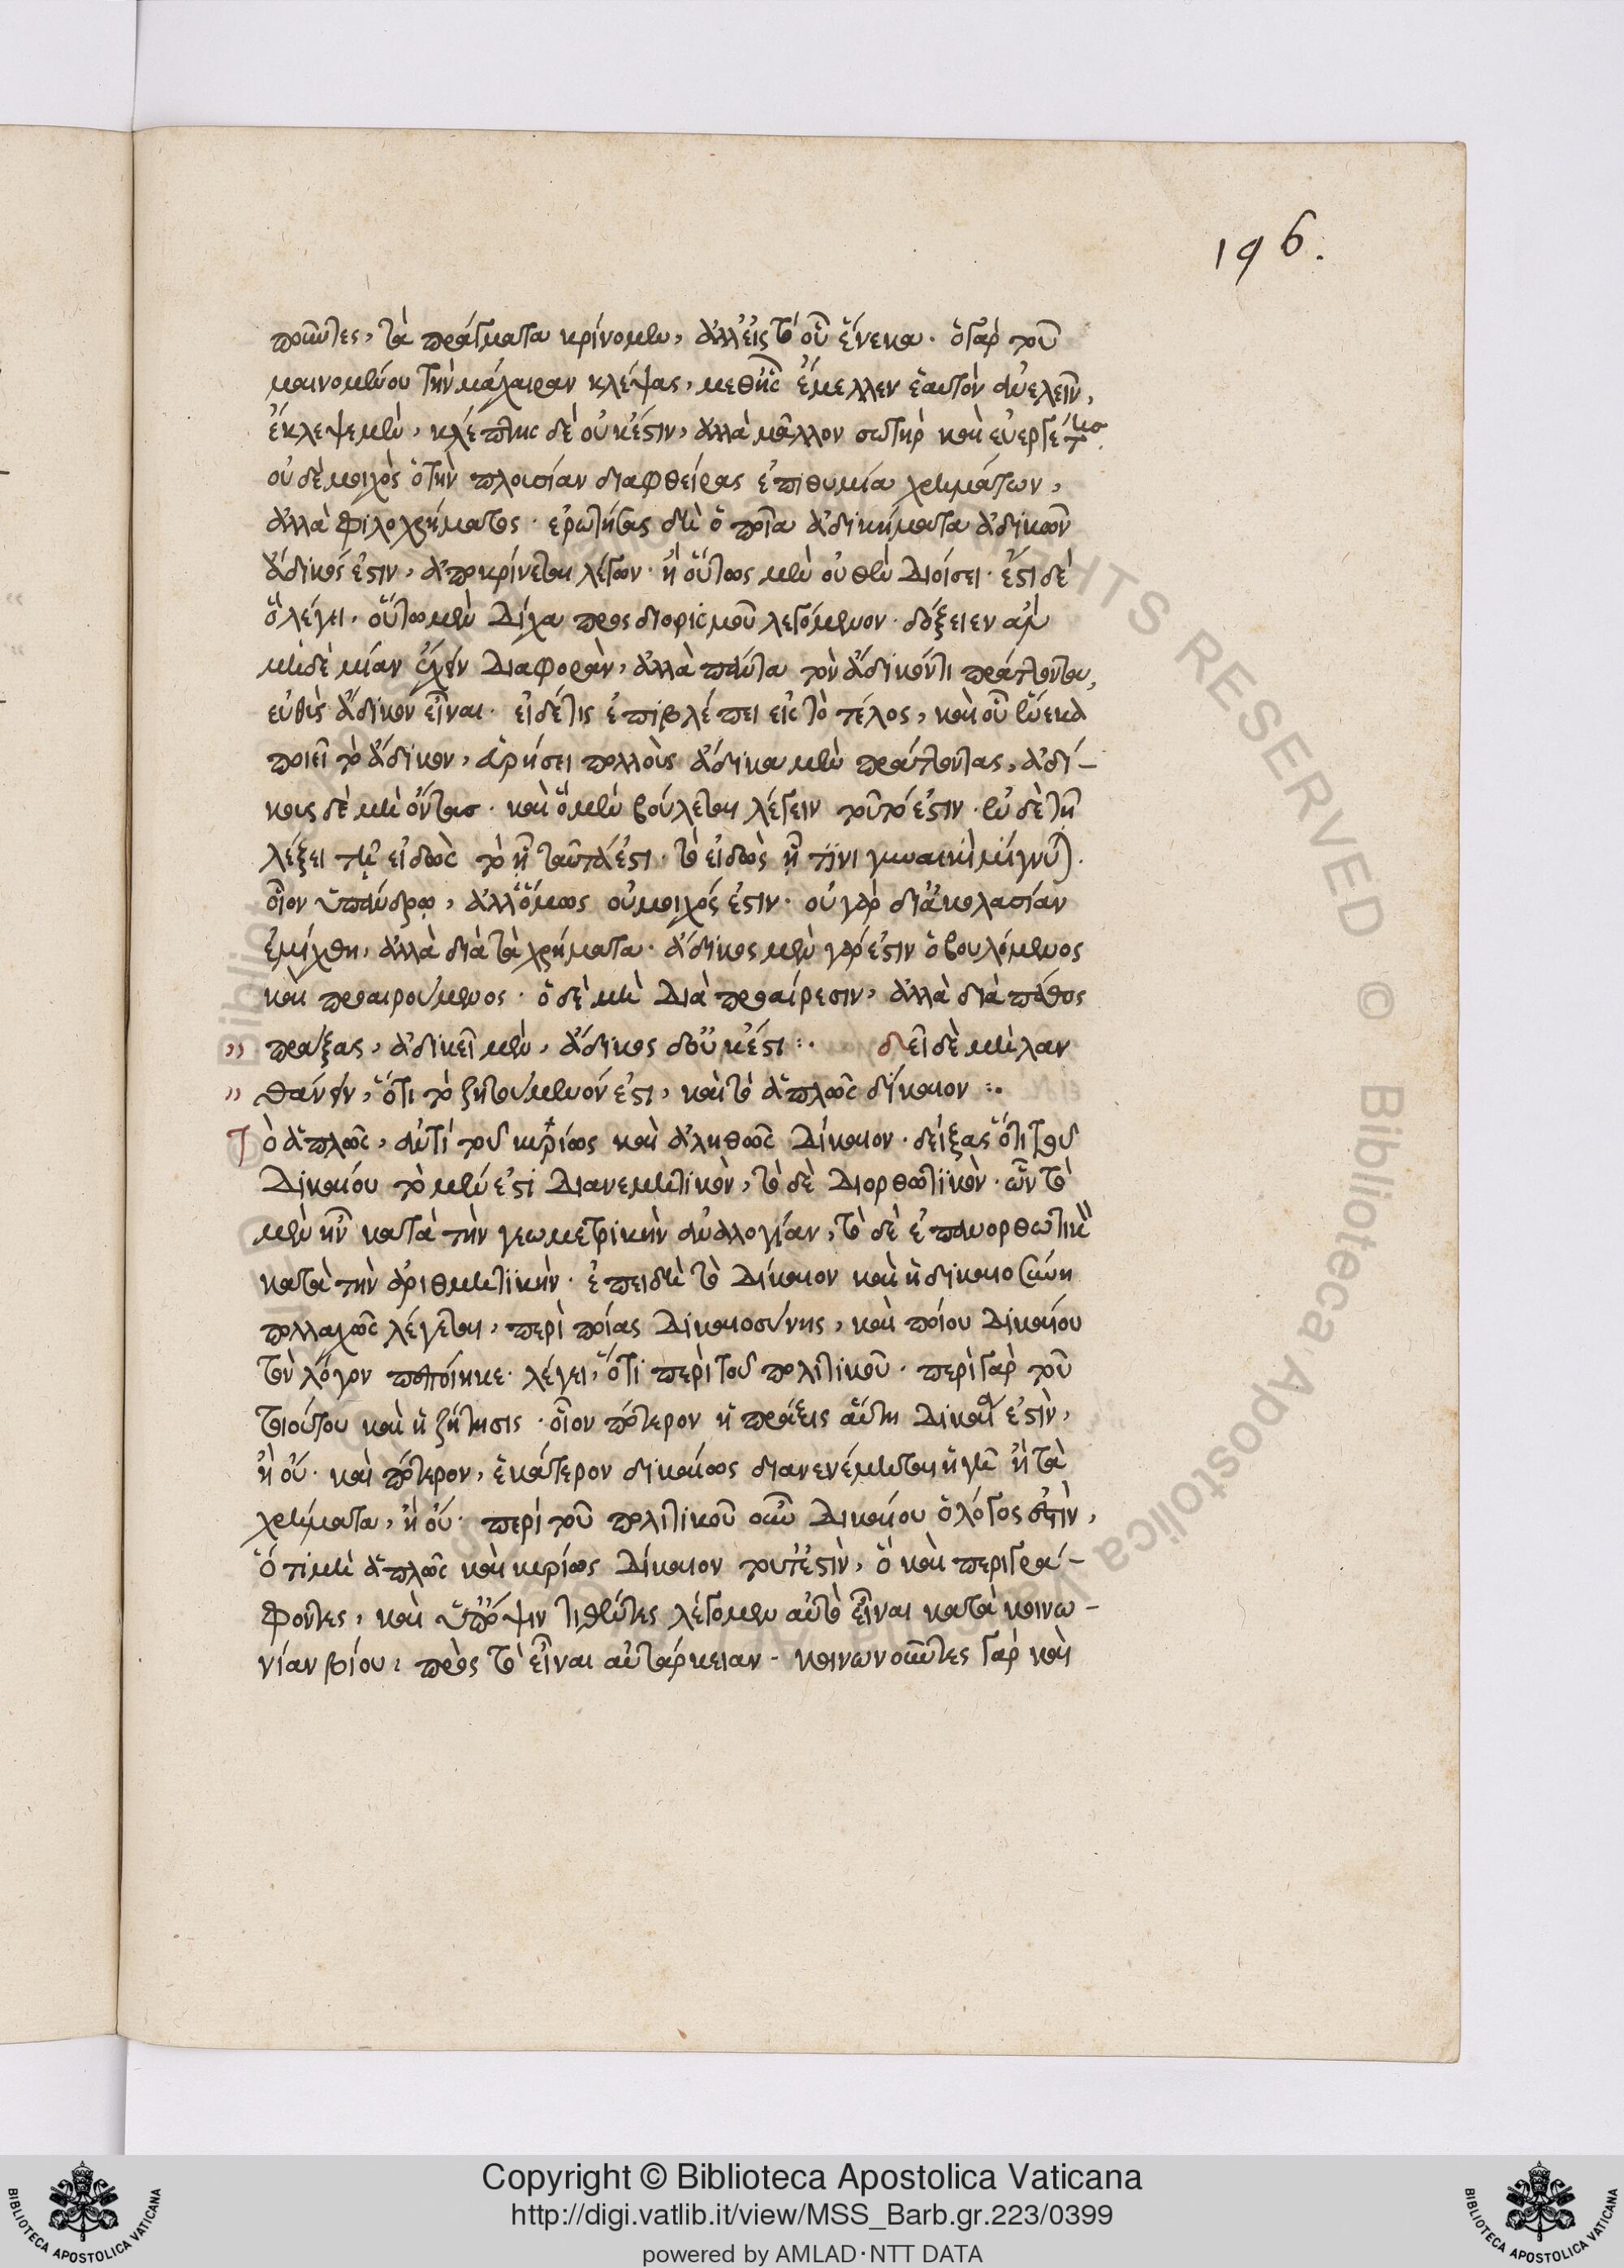 196.
ποιοῦντες, τὰ πράγματα κρίνομεν, ἀλλ' εἰς τὸ οὗ ἕνεκα. ὁ γὰρ τοῦ
μαινομένου τὴν μάχαιραν κλέψας, μεθ' ἧς ἔμελλεν ἑαυτὸν ἀνελεῖν,
ἔκλεψε μὲν, κλέπτης δὲ οὐκ ἔστιν, ἀλλὰ μᾶλλον σωτὴρ καὶ εὐεργέτης.
οὐδὲ μοιχὸς ὁ τὴν πλουσίαν διαφθείρας ἐπιθυμία χρημάτων,
ἀλλὰ φιλοχρήματος. ἐρωτήσας δὴ ὁ ποῖα ἀδικήματα ἀδικῶν
ἄδικός ἐστιν, ἀποκρίνεται λέγων. ἢ οὕτως μὲν οὐθὲν διοίσει. ἔστι δὲ
ὃ λέγει, οὕτω μὲν δίχα προσδιορισμοῦ λεγόμενον. δόξειεν ἂν
μηδὲ μίαν ἔχειν διαφορὰν, ἀλλὰ πάντα τὸν ἄδικόν τι πράττοντα,
εὐθὺς ἄδικον εἶναι. εἰ δέ τις ἐπιβλέπει εἰς τὸ τέλος, καὶ οὗ ἕνεκα
ποιεῖ τὸ ἄδικον, εὑρήσει πολλοὺς ἄδικα μὲν πράττοντας, ἀδί-
κους δὲ μὴ ὄντας. καὶ ὃ μὲν βούλεται λέγειν τοῦτό ἐστιν. ἐν δὲ τῇ
λέξει τῷ εἰδὼς τὸ ᾗ ταῦτά ἐστι. τὸ εἰδὼς ᾗ τινι γυναικὶ μίγνυται.
οἷον ὑπάνδρῳ, ἀλλ' ὅμως οὐ μοιχός ἐστιν. οὐ γὰρ δι' ἀκολασίαν
ἐμίχθη, ἀλλὰ διὰ τὰ χρήματα. ἄδικος μὲν γάρ ἐστιν ὁ βουλόμενος
καὶ προαιρούμενος. ὁ δὲ μὴ διὰ προαίρεσιν, ἀλλὰ διὰ πάθος
" πράξας, ἀδικεῖ μὲν, ἄδικος δ' οὐκ ἔστι :. δεῖ δὲ μὴ λαν
" θάνειν, ὅτι τὸ ζητούμενόν ἐστι, καὶ τὸ ἁπλῶς δίκαιον :.
Τὸ ἁπλῶς, ἀντὶ τοῦ κυρίως καὶ ἀληθῶς δίκαιον. δείξας ὅτι τοῦ
δικαίου τὸ μέν ἐστι διανεμητικὸν, τὸ δὲ διορθωτικὸν. ὧν τὸ
μὲν ἦν κατὰ τὴν γεωμετρικὴν ἀναλογίαν, τὸ δὲ ἐπανορθωτικὸν
κατὰ τὴν ἀριθμητικὴν. ἐπειδὴ τὸ δίκαιον καὶ ἡ δικαιοσύνη
πολλαχῶς λέγεται, περὶ ποίας δικαιοσύνης, καὶ ποίου δικαίου
τὸν λόγον πεποίηκε. λέγει, ὅτι περὶ τοῦ πολιτικοῦ. περὶ γὰρ τοῦ
τοιούτου καὶ ἡ ζήτησις. οἷον πότερον ἡ πράξις αὕτη δικαία ἐστὶν,
ἢ οὔ. καὶ πότερον, ἑκάτερον δικαίως διανενέμηται ἡ γῆ ἢ τὰ
χρήματα, ἢ οὔ. περὶ τοῦ πολιτικοῦ οὖν δικαίου ὁ λόγος ἐστὶν,
ὅτι μὴ ἁπλῶς καὶ κυρίως δίκαιον τοῦτ' ἐστὶν, ὃ καὶ περιγρά-
φοντες, καὶ ὑπ' ὄψιν τιθέντες λέγομεν αὐτὸ εἶναι κατὰ κοινω-
νίαν βίου, πρὸς τὸ εἶναι αὐτάρκειαν. κοινωνοῦντες γὰρ καὶ
Copyright © Biblioteca Apostolica Vaticana
http://digi.vatlib.it/view/MSS_Barb.gr.223/0399
powered by AMLAD·NTT DATA